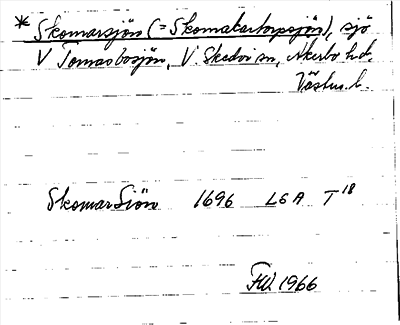 * Skomarsjön (= Skomakartorpssjön), sjö
V Tomasbosjön, V. Skedvi sn, Åkerbo hd,
Västm. l.
Skomar Siön 1696 LSA T 18
1966